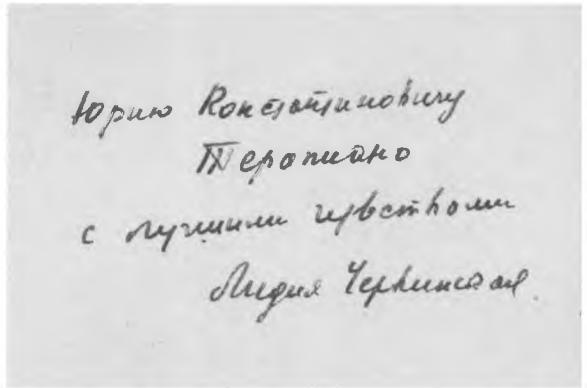 Юрию Константиновичу
Терапиано
с лучшими чувствами
Лидия Червинская.